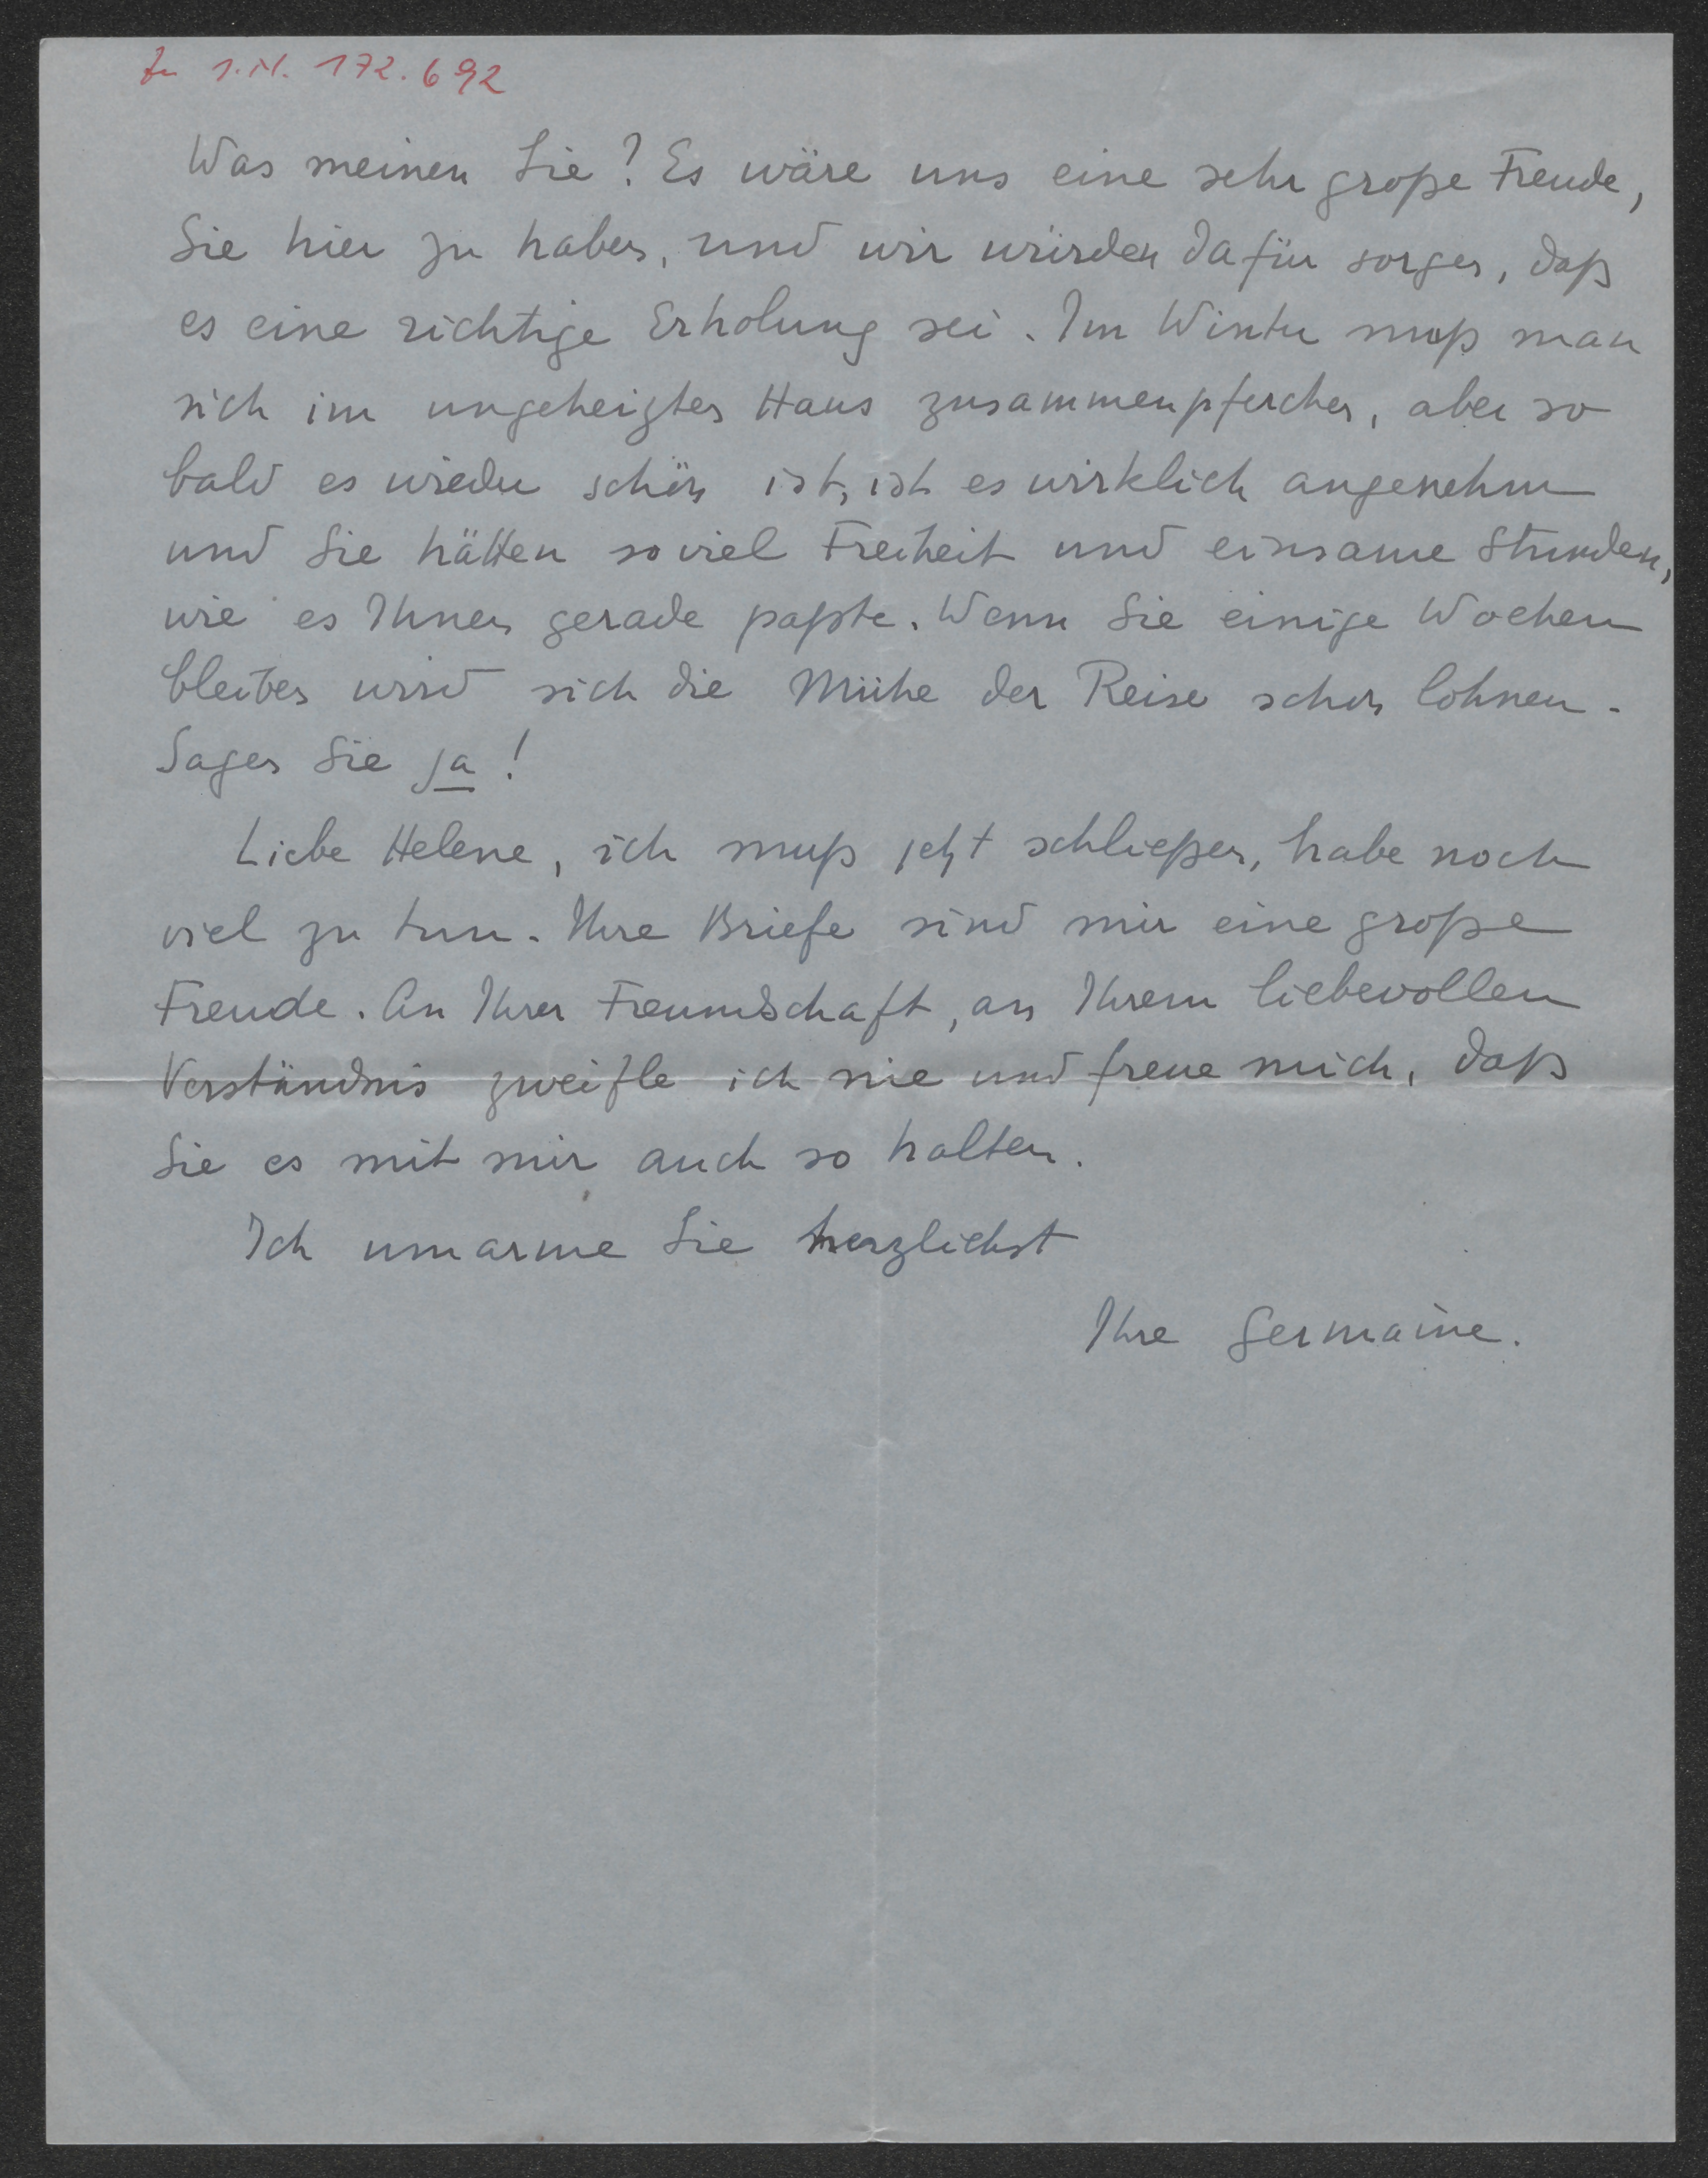 Zu I.N. 172.692
Was meinen Sie? Es wäre uns eine sehr große Freude,
Sie hier zu haben, und wir würden dafür sorgen, daß
es eine richtige Erholung sei. Im Winter muß man
sich im ungeheizten Haus zusammenpferchen, aber so
bald es wieder schön ist, ist es wirklich angenehm
und Sie hätten soviel Freiheit und einsame Stunden,
wie es Ihnen gerade paßte. Wenn Sie einige Wochen
bleiben wird sich die Mühe der Reise schon lohnen.
Sagen Sie ja!
Liebe Helene, ich muß jetzt schließen, habe noch
viel zu tun. Ihre Briefe sind mir eine große
Freude. An Ihrer Freundschaft, an Ihrem liebevollen
Verständnis zweifle ich nie und freue mich, daß
Sie es mit mir auch so halten.
Ich umarme Sie herzlichst
Ihre Germaine.